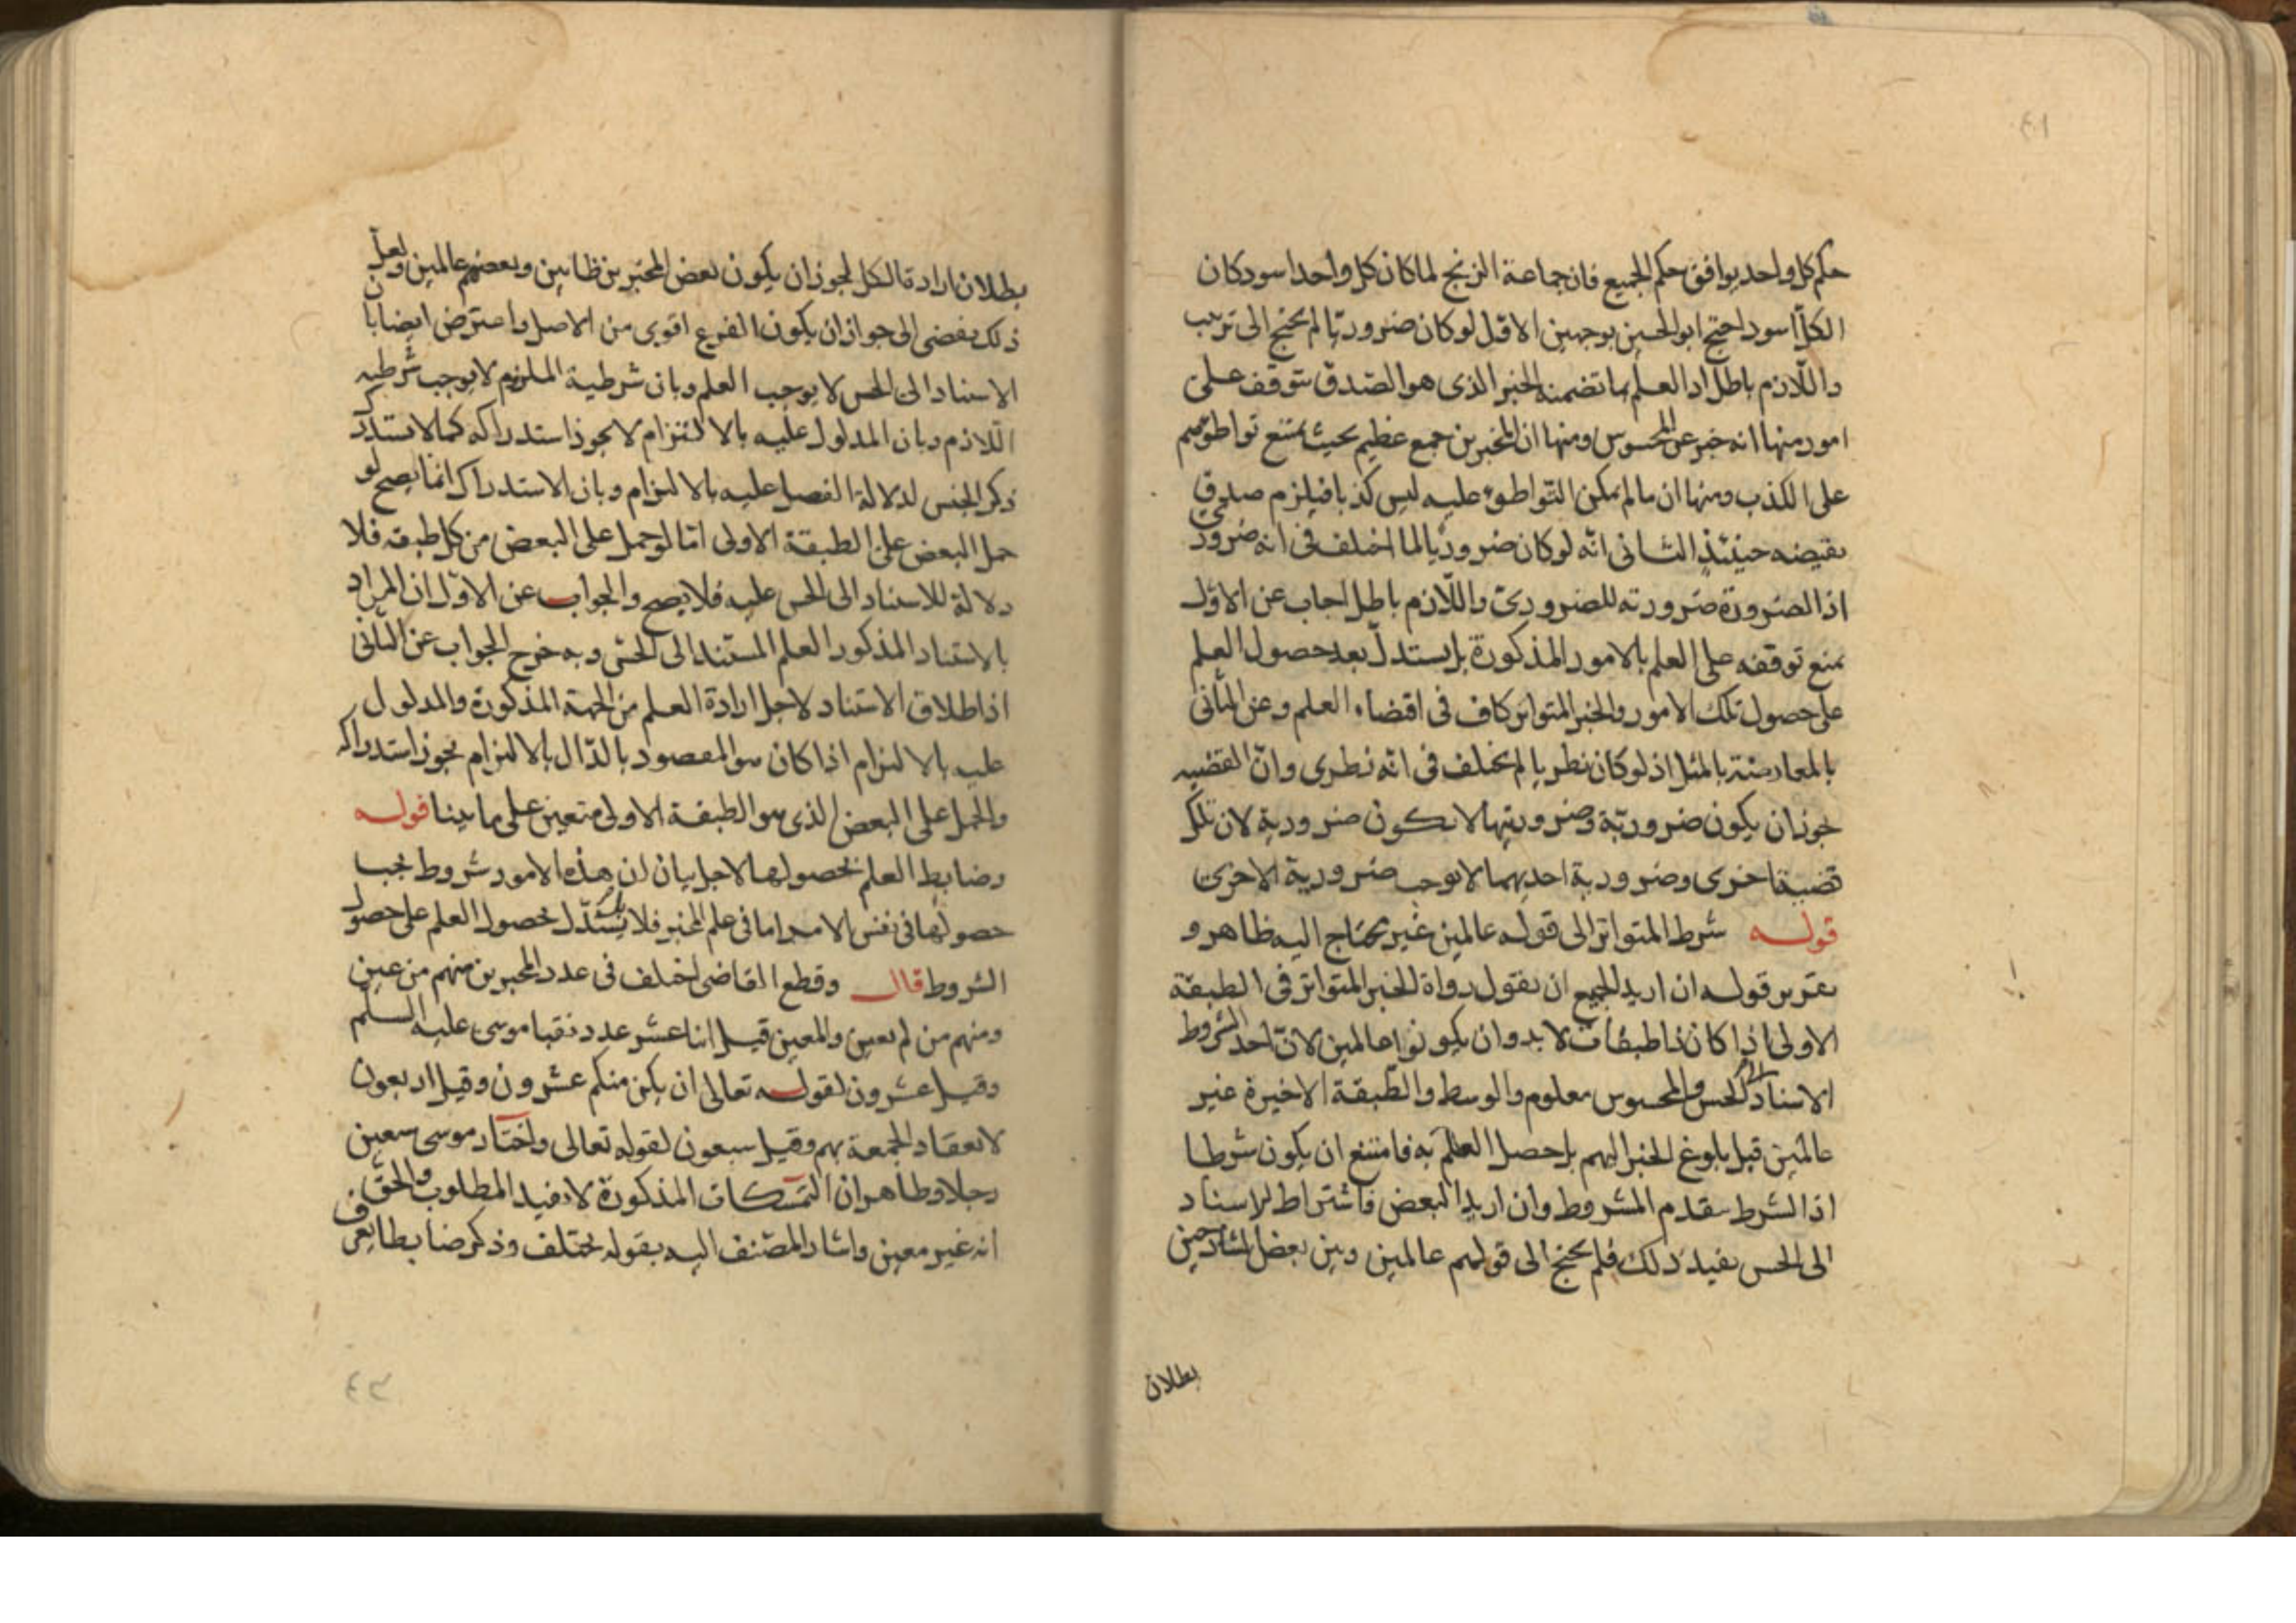 حكم كل واحد يوافق حكم الجميع فان جماعة الزنج لما كان كل واحد اسود كان
الكل اسود احتج ابو الحسين بوجهين الاول لو كان ضروريا لم يحتج الى ترتيب
واللازم باطل اذ العلم بما تضمنه الخبر الذى هو الصدق يتوقف على
امور منها انه خبر عن المحسوس ومنها ان المخبرين جمع عظيم بحيث يمتنع تواطؤهم
على الكذب ومنها ان ما لم يمكن التواطوء عليه ليس كذبا فيلزم صدق
نقيضه حينئذ الثانى انه لو كان ضروريا لما اختلف فى انه ضرورى
اذ الضرورة ضرورته للضرورى واللازم باطل اجاب عن الاول
بمنع توقفه على العلم بالامور المذكورة بل يستدل بعد حصول العلم
على حصول تلك الامور والخبر المتواتر كاف فى اقتضاء العلم وعن الثانى
بالمعارضة بالمثل اذ لو كان نظريا لم يختلف فى انه نظرى وان القضيه
يجوز ان يكون ضرورية وضروريتها لا يكون ضرورية لان تلك
قضية اخرى وضرورية احديهما لا توجب ضرورية الاخرى
قوله شرط المتواتر الى قوله عالمين غير محتاج اليه ظاهر و
تقرير قوله ان اريد الجميع ان نقول رواة الخبر المتواتر فى الطبقة
الاولى اذا كان ذا طبقات لا بد وان يكونوا عالمين لان احد الشروط
الاسناد الى الحس والمحسوس معلوم والوسط والطبقة الاخيرة غير
عالمين قبل بلوغ الخبر اليهم بل حصل العلم به فامتنع ان يكون شرطا
اذ الشرط يتقدم المشروط وان اريد البعض فاشتراط الاسناد
الى الحس يفيد ذلك فلم يحتج الى قولهم عالمين وبين بعض الشارحين
بطلان
بطلان ارادة الكل لجواز ان يكون بعض المخبرين ظانين وبعضهم عالمين ولعل
ذلك يفضى الى جواز ان يكون الفرع اقوى من الاصل واعترض ايضا بان
الاسناد الى الحس لا يوجب العلم وبان شرطية الملزوم لا يوجب شرطيه
اللازم وبان المدلول عليه بالالتزام لا يجوز استدراكه كما لا يستدرك
ذكر الجنس لدلالة الفصل عليه بالالتزام وبان الاستدراك انما يصح لو
حمل البعض على الطبقة الاولى اما لو حمل على البعض من كل طبقه فلا
دلالة للاسناد الى الحس عليه فلا يصح والجواب عن الاول ان المراد
بالاستناد المذكور العلم المستند الى الحس وبه خرج الجواب عن الثانى
اذ اطلاق الاستناد لاجل ارادة العلم من الجهة المذكورة والمدلول
عليه بالالتزام اذا كان هو المقصود بالدال بالالتزام يجوز استدراكه
والحمل على البعض الذى هو الطبقة الاولى متعين على ما بينا قوله
وضابط العلم بحصولها لاجل بيان ان هذه الامور شروط يجب
حصولها فى نفس الامر اما فى علم المخبر فلا بل يستدل بحصول العلم على حصول
الشروط قال وقطع القاضى اختلف فى عدد المخبرين منهم من عين
ومنهم من لم يعين والمعين قيل اثنا عشر عدد نقبا موسى عليه السلم
وقيل عشرون لقوله تعالى ان يكن منكم عشرون وقيل اربعون
لانعقاد الجمعة بهم وقيل سبعون لقوله تعالى واختار موسى سبعين
رجلا وظاهر ان التمسكات المذكورة لا تفيد المطلوب والحق
انه غير معين واشار المصنف اليه بقوله يختلف وذكر ضابطا يعرف
٤٢